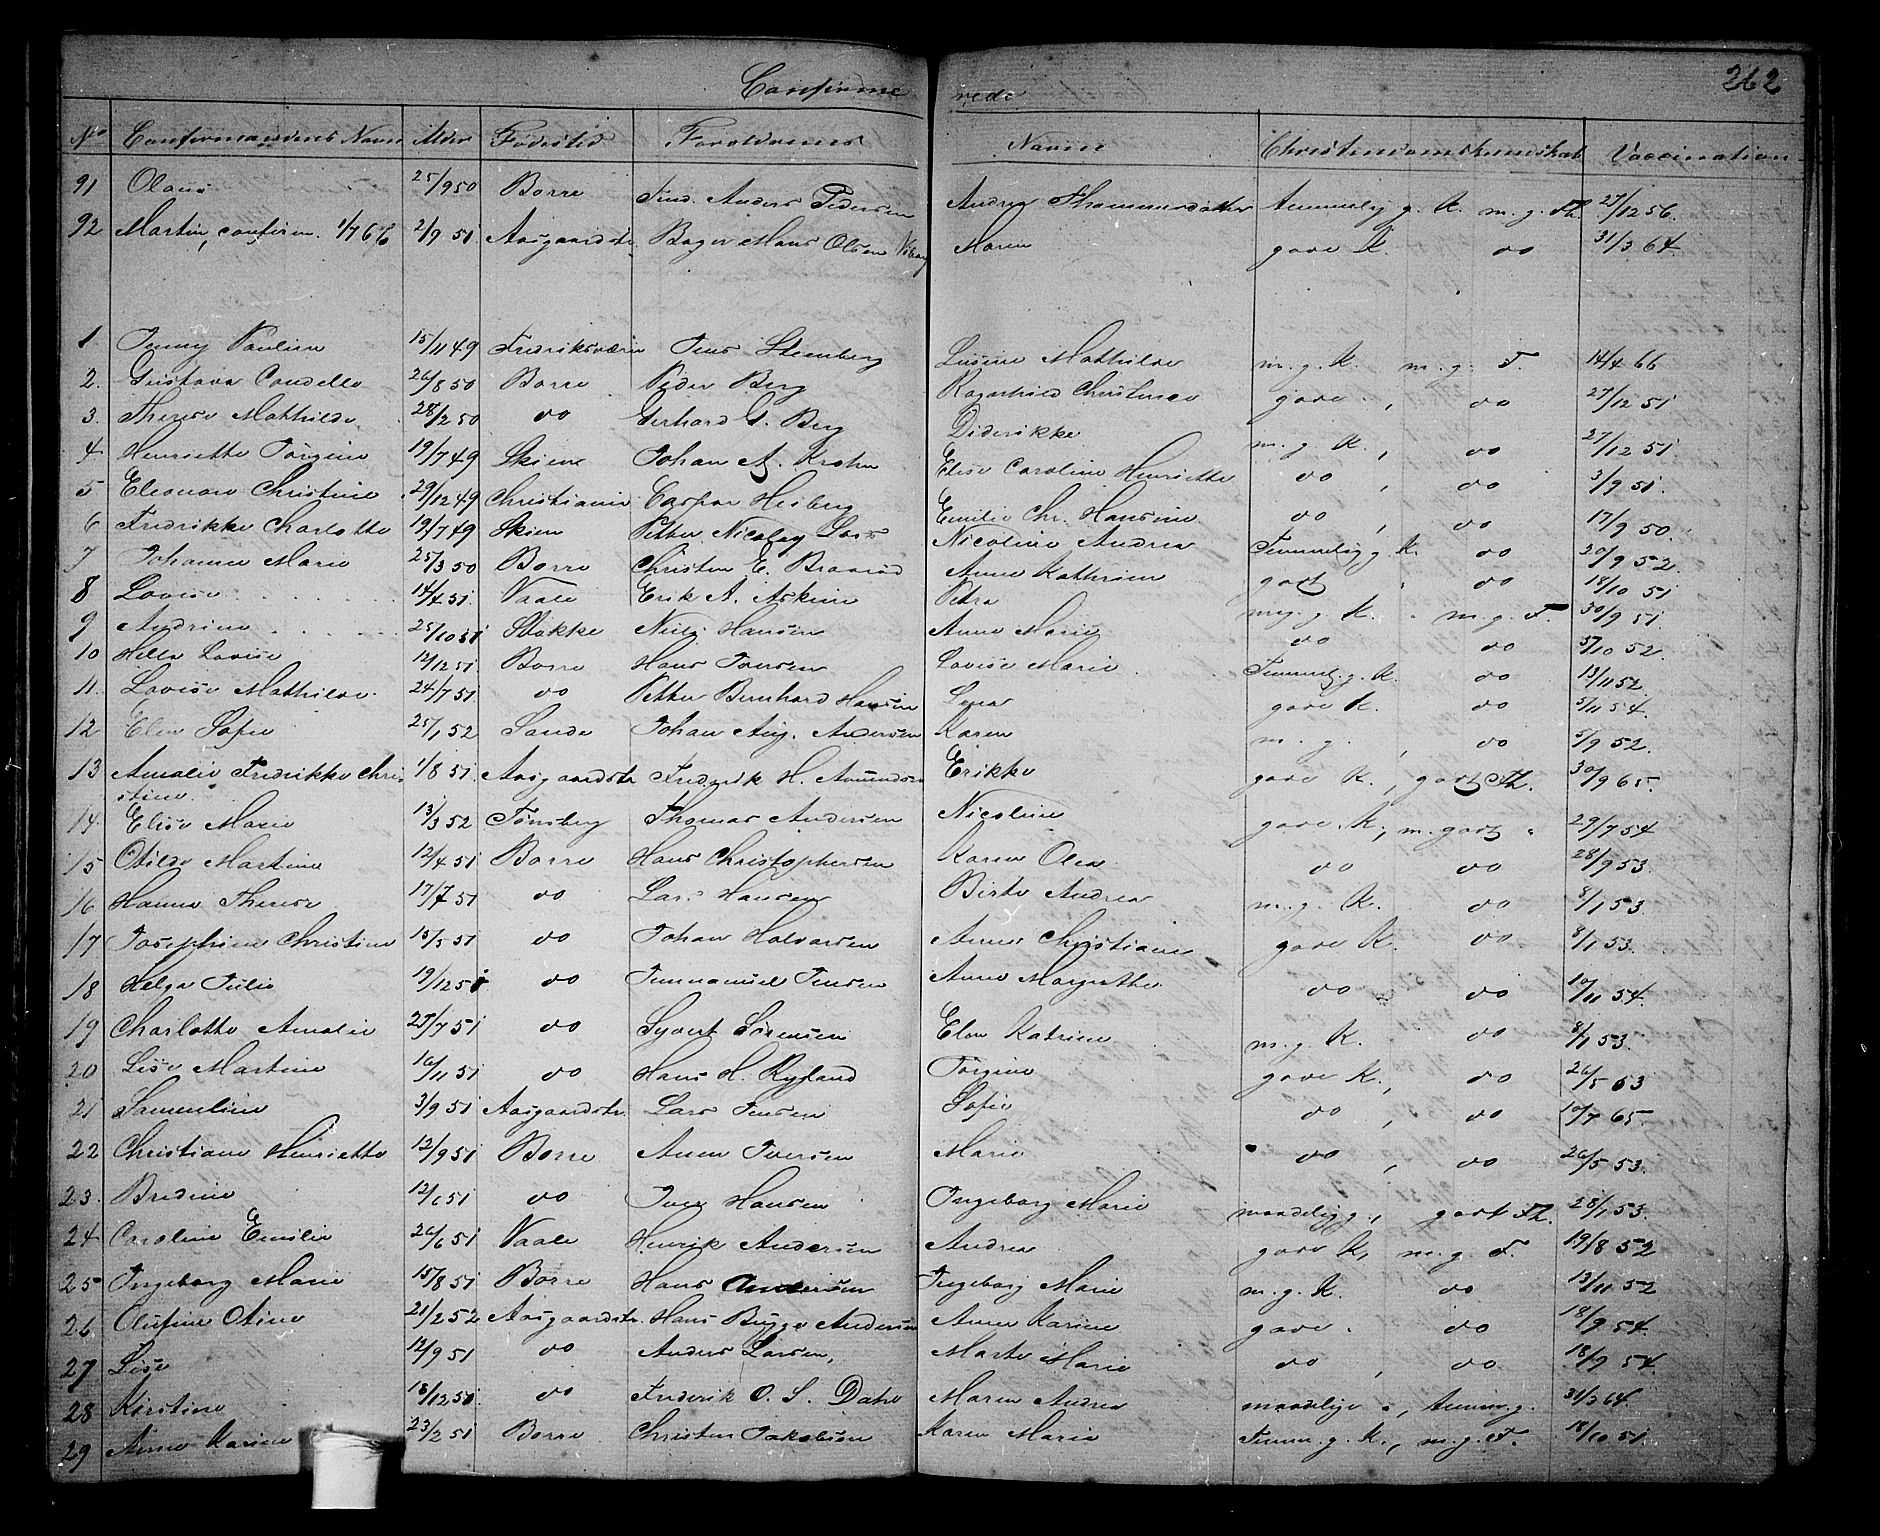 Confirme rede 262
No Confirmandens Navn Alder Fødested Forældrenes Navne Christendomskundskab Vaccination
91 Olaus 25/9 50 Borre Anders Pedersen Andrea Thommesdatter Temmelig g. K. m. g. Fl. 27/12 56.
92 Martin, confirm. 1/7 66 2/9 51 Aasgaardstr. Bager Hans Olsen Maren gode K. do 31/3 64.
1 Jenny Pauline 15/11 49 Fredriksværn Jens Steenberg Lusine Mathilde m. g. K. m. g. F. 14/4 66
2. Gustava Condelle 26/8 50 Borre Peder Berg Ragnhild Christence gode , do 27/12 51
3. Therese Mathilde 28/2 50 do Gerhard G. Berg Diderikke m. g. K , do 27/12 51.
4 Henriette Jørgine 19/7 49 Skien Johan A. Krohn Elise Caroline Henriette do , do 3/9 51.
5 Eleonore Christine 29/12 49 Christiania Caspar Heiberg Emilie Chr. Hansine do , do 17/9 50.
6 Fredrikke Charlotte 19/7 49 Skien Petter Nicolay Nicoline Andrea Temmelig g. K. do 20/9 52.
7 Johanne Marie 25/3 50 Borre Christen E. Braarød Anne Kathrine godt do 18/10 51
8 Lovise 14/4 51 Vaale Erik A. Askim Petra mg. g K. m. g. F. 30/9 51
9 Andrine 25/10 51 Stokke Niels Hansen Anne Marie do do 5/10 52.
10 Hella Lovise 12/12 51 Borre Hans Iversen Lovise Marie Temmel. g. K. do 13/11 52.
11. Lovise Mathilde 24/7 51 do Petter Bernhard Hansen Lena gode K. do 5/11 54.
12 Elen Sofie 25/1 52 Sande Johan Aug. Andersen Karen m. g. , do 5/9 52.
13 Amalie Fredrikke Chri- 1/8 51. Aasgaardstr. Frederik H. Amundsen Erikke gode K. , godt Fl. 30/9 65.
stine.
14. Elise Marie 13/3 52 Tønsberg Thomas Andersen Nicoline gode K, m. godt " 29/7 54
15 Otilde Martine 12/4 51 Borre Hans Christophersen Karen Olea do do 28/9 53.
16 Hanna Therese 17/7 51 do Lars Hansen Birte Andrea m. g. K. do 8/1 53.
17 Josephine Christine 15/5 51 do Johan Halvorsen Anne Christiane gode K. do 8/1 53.
18 Helga Julie 19/12 51 do Immanuel Jensen Anne Margrethe do do 10/11 54.
19 Charlotte Amalie 25/7 51 do Syvert Sørensen Elen Katrine m. g. K. do 8/1 53.
20 Lise Martine 16/11 51 do Hans H. Ryland Jørgine gode K., do 26/5 53
21 Samueline 3/9 51 Aasgaardstr. Lars Jensen Sofie do , do 10/7 65.
22 Christiane Henriette 12/9 51 Borre Anen Iversen Marie do , do 26/5 53.
23. Bredine 12/6 51 do Iver Hansen Ingeborg Marie maadelig g., godt Fl. 28/1 53.
24 Caroline Emilie 26/6 51 Vaale Henrik Andersen Andrea gode K, m. g. F. 19/8 52
25 Ingeborg Marie 15/8 51 Borre Hans Andersen Ingeborg Marie m. g. K. do 13/11 52
26 Olufine Otine 21/2 52 Aasgaardstr. Hans Bugge Andersen Anne Karine gode . do 18/9 54.
27 Lise 12/9 51 do Anders Larsen, Marte Marie do , do 18/9 54.
28 Kirstine 18/12 50 do Frederik O. S. Dahl Maren Andrea maadelige , Temm. g. 31/3 64
29 Anne Karine 23/2 51 Borre Christen Jakobsen Karen Marie Temm. g. K., m. g. F. 18/10 51.